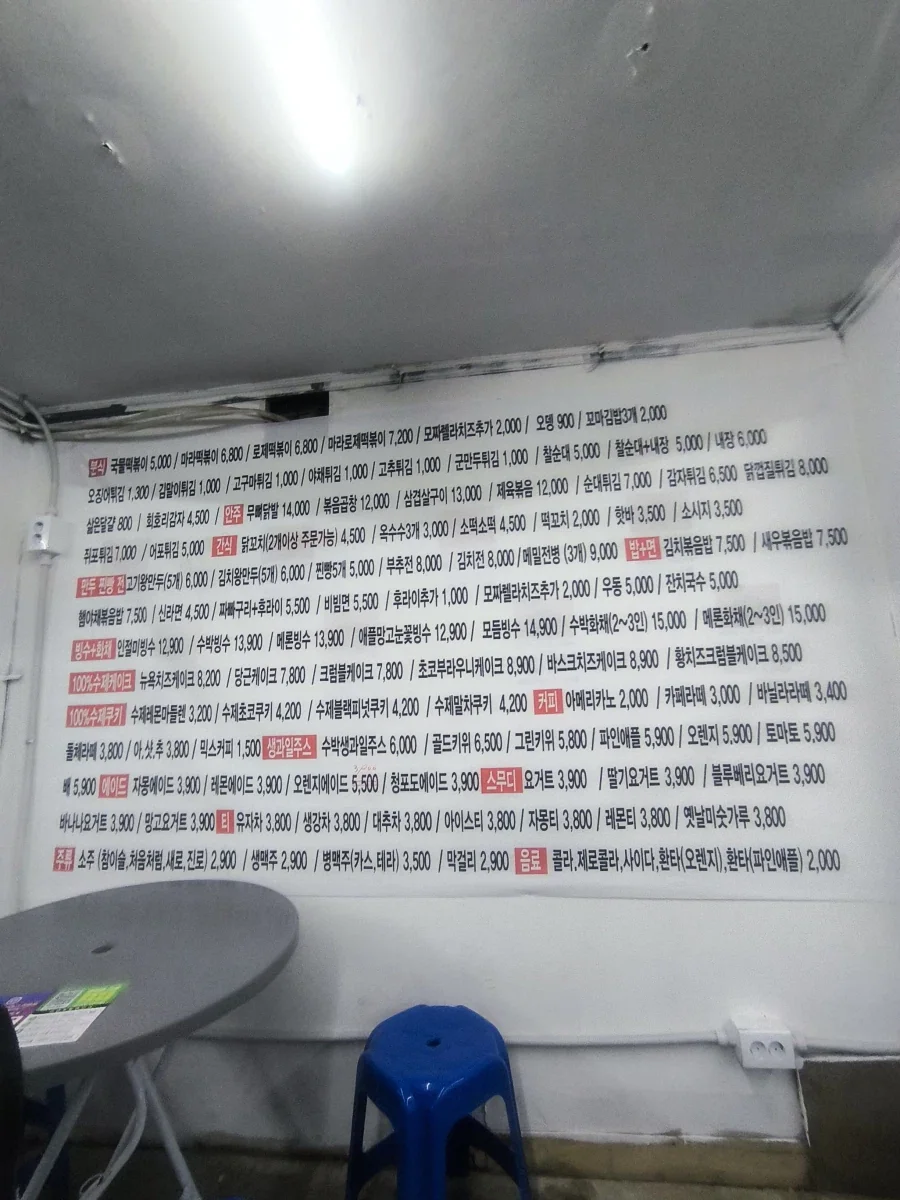 분식 국물떡볶이 5,000 / 마라떡볶이 6,800 / 로제떡볶이 6,800 / 마라로제떡볶이 7,200 / 모짜렐라치즈추가 2,000 / 오뎅 900 / 꼬마김밥3개 2,000
오징어튀김 1,300 / 김말이튀김 1,000 / 고구마튀김 1,000 / 야채튀김 1,000 / 고추튀김 1,000 / 군만두튀김 1,000 / 찰순대 5,000 / 찰순대+내장 5,000 / 내장 6,000
삶은달걀 800 / 회호리감자 4,500 / 안주 무뼈닭발 14,000 / 볶음곱창 12,000 / 삼겹살구이 13,000 / 제육볶음 12,000 / 순대튀김 7,000 / 감자튀김 6,500 닭껍질튀김 8,000
쥐포튀김 7,000 / 어포튀김 5,000 간식 닭꼬치(2개이상 주문가능) 4,500 / 옥수수3개 3,000 / 소떡소떡 4,500 / 떡꼬치 2,000 / 핫바 3,500 / 소시지 3,500
만두 찐빵 전 고기왕만두(5개) 6,000 / 김치왕만두(5개) 6,000 / 찐빵5개 5,000 / 부추전 8,000 / 김치전 8,000 / 메밀전병 (3개) 9,000 밥+면 김치볶음밥 7,500 / 새우볶음밥 7,500
햄야채볶음밥 7,500 / 신라면 4,500 / 짜빠구리+후라이 5,500 / 비빔면 5,500 / 후라이추가 1,000 / 모짜렐라치즈추가 2,000 / 우동 5,000 / 잔치국수 5,000
빙수+화채 인절미빙수 12,900 / 수박빙수 13,900 / 메론빙수 13,900 / 애플망고눈꽃빙수 12,900 / 모듬빙수 14,900 / 수박화채(2~3인) 15,000 / 메론화채(2~3인) 15,000
100%수제케이크 뉴욕치즈케이크 8,200 / 당근케이크 7,800 / 크럼블케이크 7,800 / 초코부라우니케이크 8,900 / 바스크치즈케이크 8,900 / 황치즈크럼블케이크 8,500
100%수제쿠키 수제레몬마들렌 3,200 / 수제초코쿠키 4,200 / 수제블랙피넛쿠키 4,200 / 수제말차쿠키 4,200 커피 아메리카노 2,000 / 카페라떼 3,000 / 바닐라라떼 3,400
돌체라떼 3,800 / 아.샷.추 3,800 / 믹스커피 1,500 생과일주스 수박생과일주스 6,000 / 골드키위 6,500 / 그린키위 5,800 / 파인애플 5,900 / 오렌지 5,900 / 토마토 5,900
배 5,900 에이드 자몽에이드 3,900 / 레몬에이드 3,900 / 오렌지에이드 5,500 / 청포도에이드 3,900 스무디 요거트 3,900 / 딸기요거트 3,900 / 블루베리요거트 3,900
바나나요거트 3,900 / 망고요거트 3,900 티 유자차 3,800 / 생강차 3,800 / 대추차 3,800 / 아이스티 3,800 / 자몽티 3,800 / 레몬티 3,800 / 옛날미숫가루 3,800
주류 소주 (참이슬,처음처럼,새로,진로) 2,900 / 생맥주 2,900 / 병맥주(카스,테라) 3,500 / 막걸리 2,900 음료 콜라,제로콜라,사이다,환타(오렌지),환타(파인애플) 2,000